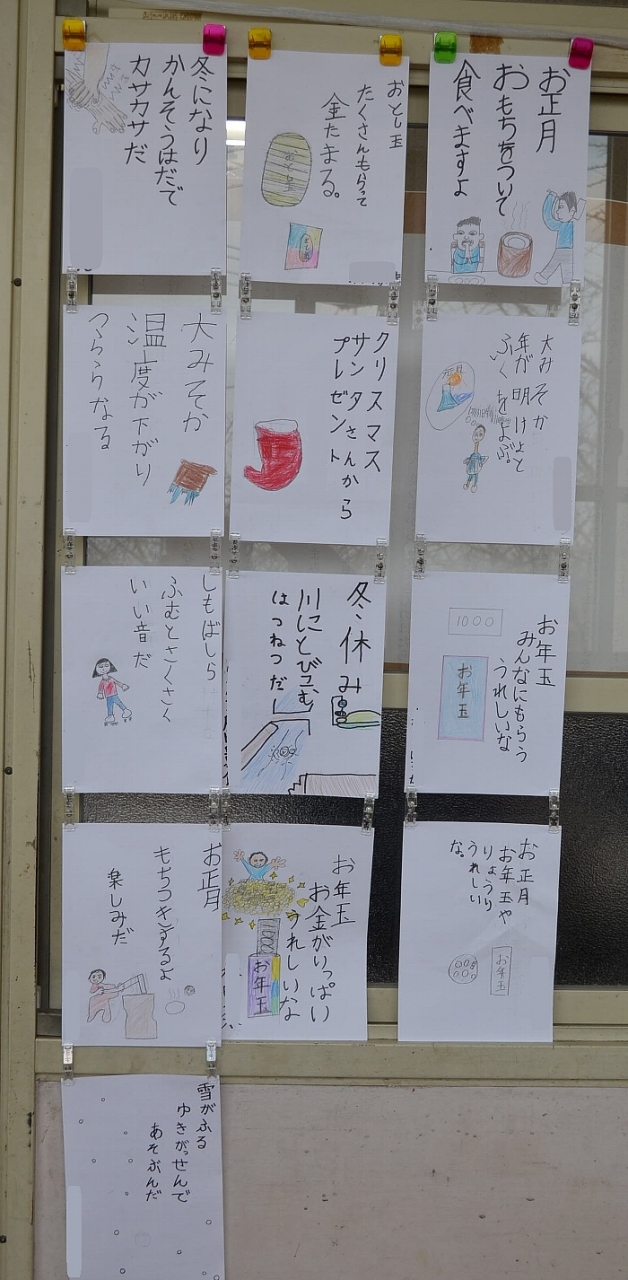 お正月
おもちをついて
食べますよ
おとし玉
たくさんもらって
金たまる。
おとし玉
冬になり
かんそうはだで
カサカサだ
大みそか
年が明けよと
ふくをよぶ。
クリスマス
サンタさんから
プレゼント
大みそか
温度が下がり
つららなる
お年玉
みんなにもらう
うれしいな
1000
お年玉
冬休み
川にとびこむ
はつねつだ
しもばしら
ふむとさくさく
いい音だ
お正月
お年玉や
りょうり
うれしい
な。
お年玉
お年玉
お金がいっぱい
うれしいな
お年玉
お正月
もちつきするよ
楽しみだ
雪がふる
ゆきがっせんで
あそぶんだ